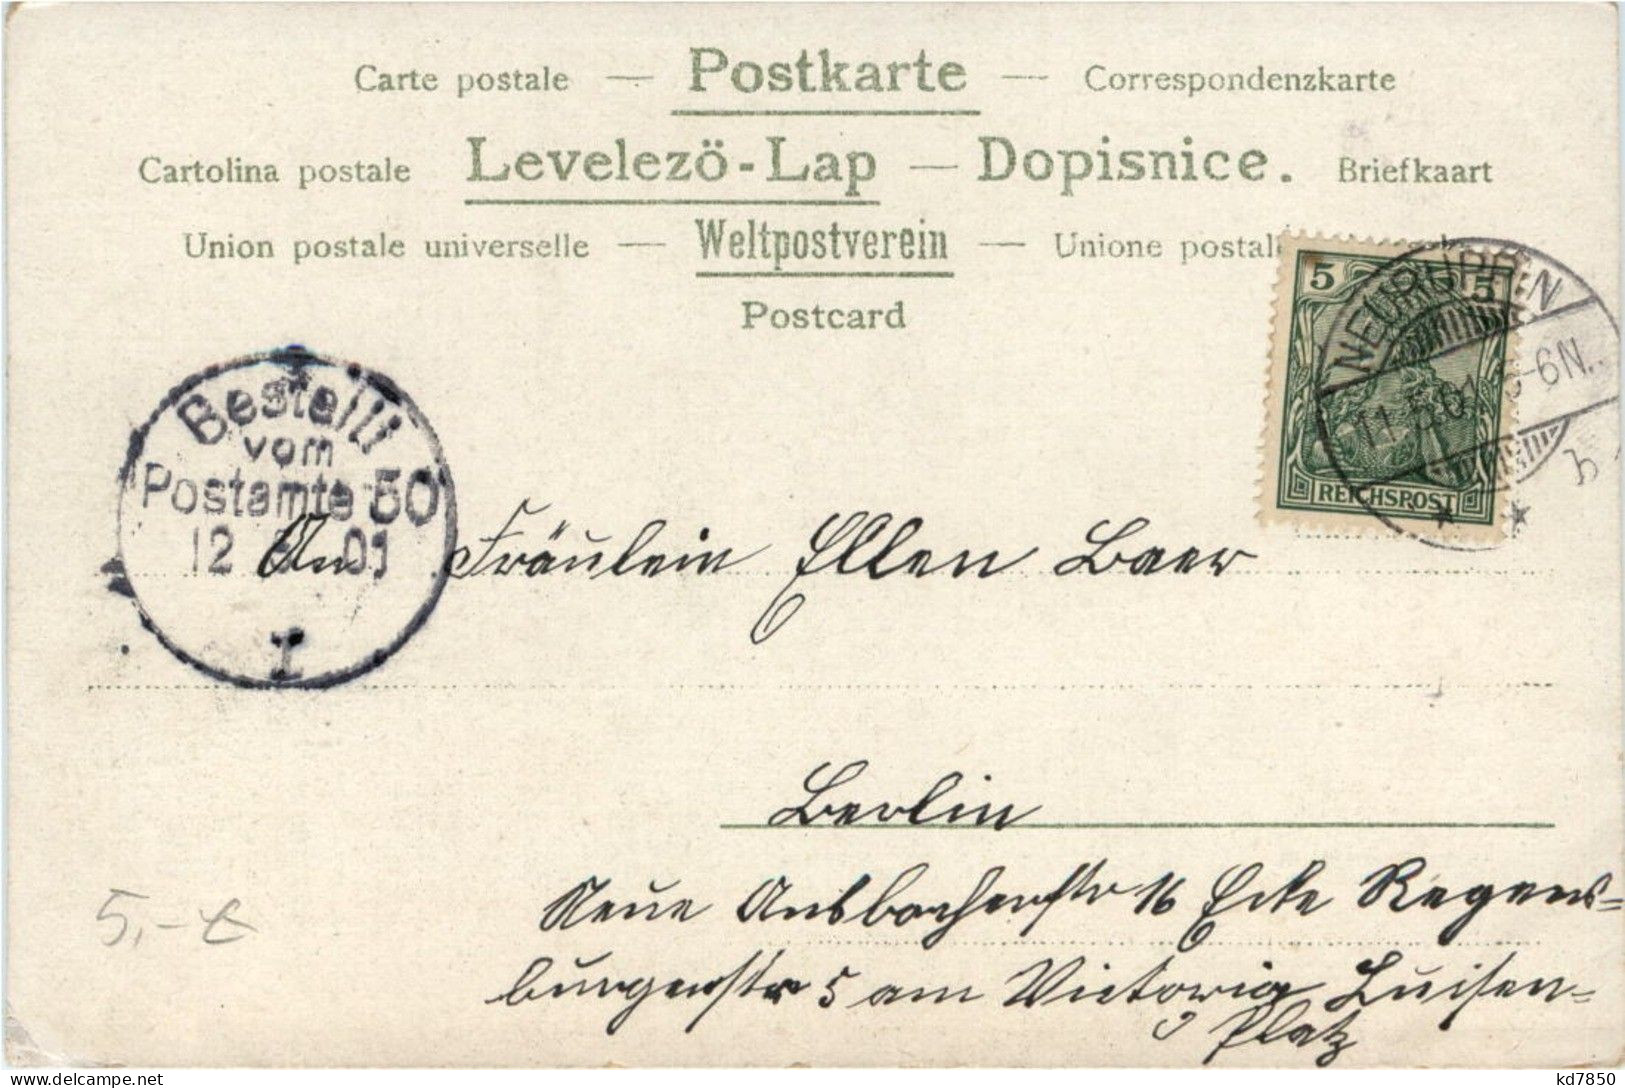 Carte postale — Postkarte — Correspondenzkarte
Cartolina postale Levelezö-Lap — Dopisnice. Briefkaart
Union postale universelle — Weltpostverein — Unione postal
Postcard
5 5
REICHSPOST
NEURUPPIN
11.5.01. 5-6N.
Bestellt
vom
Postamte 50
12 01
I
An Fräulein Ellen Baer
Berlin
Neue Ansbacherstr 16 Ecke Regens=
burgerstr 5 am Victoria Luisen=
Platz
5,- €
kd7850